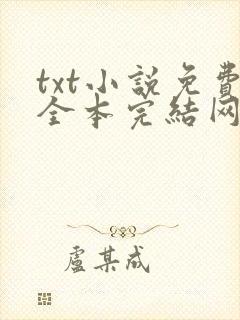 txt小説免費
全本完結网
盧某成